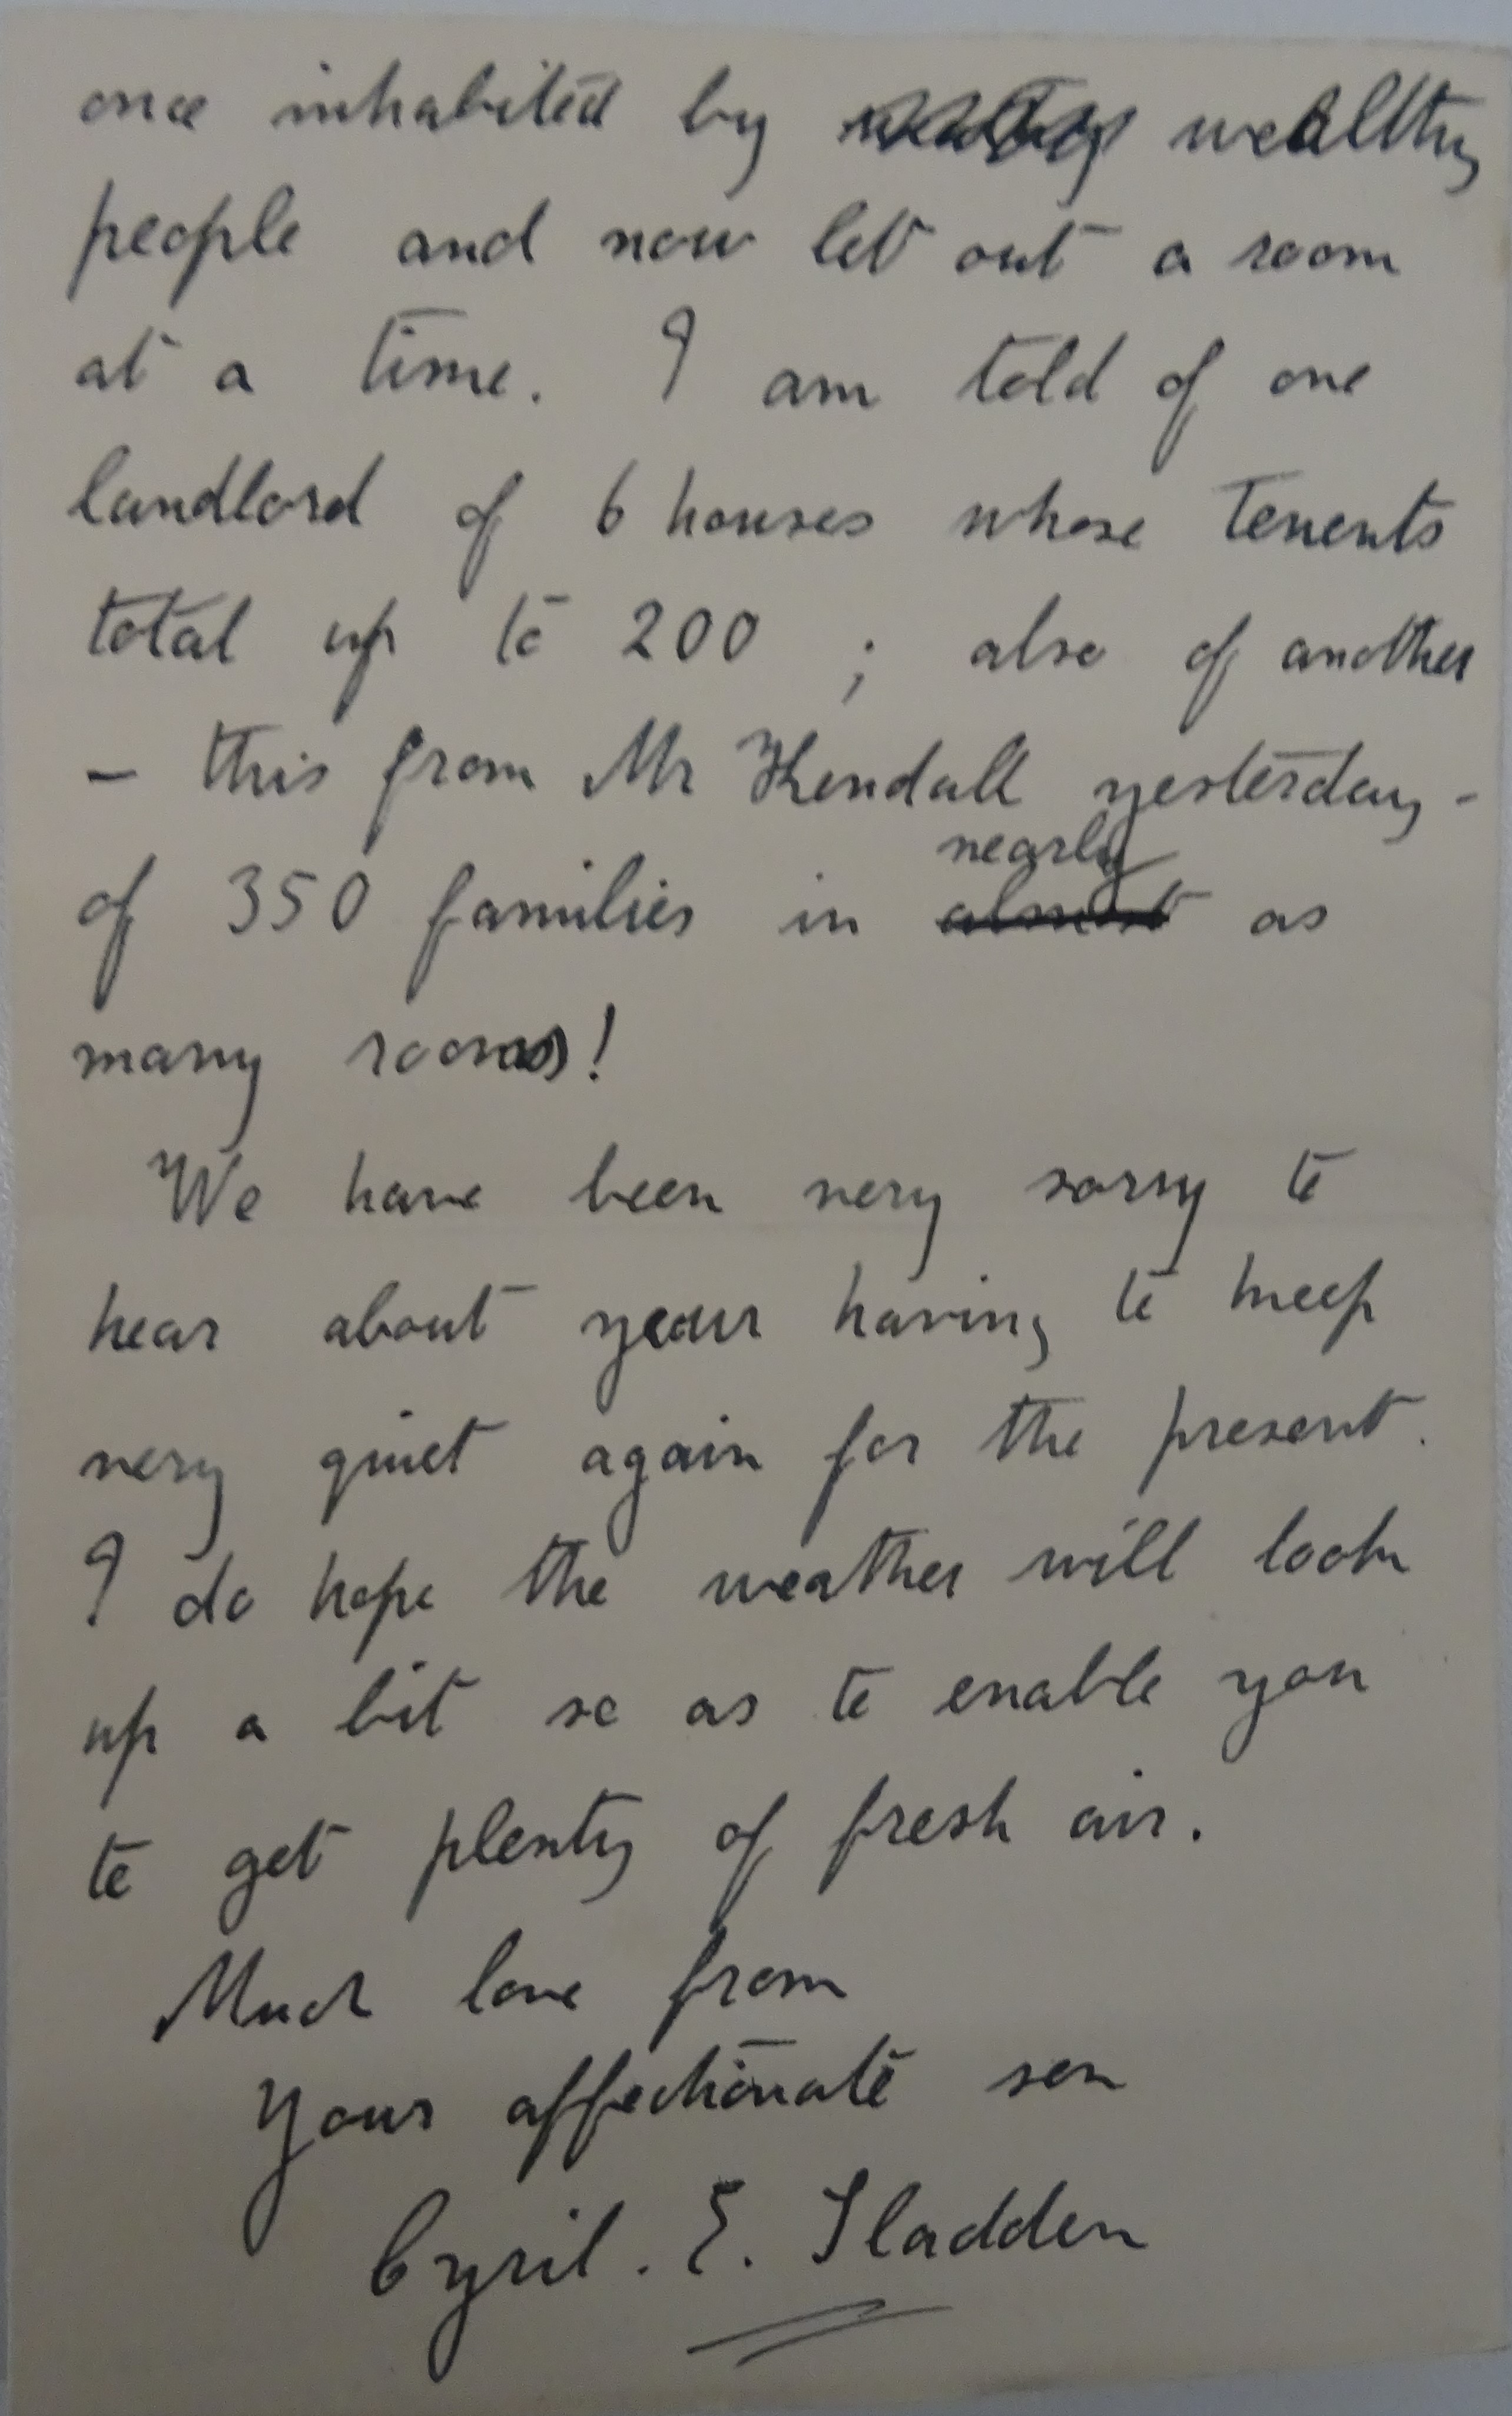 once inhabited by wealthy
people and now let out a room
at a time. I am told of one
landlord of 6 houses whose tenents
total up to 200 ; also of another
– this from Mr Kendall yesterday –
nearly
of 350 families in almost as
many rooms!
We have been very sorry to
hear about your having to keep
very quiet again for the present.
I do hope the weather will look
up a bit so as to enable you
to get plenty of fresh air.
Much love from
Your affectionate son
Cyril. E. Sladden